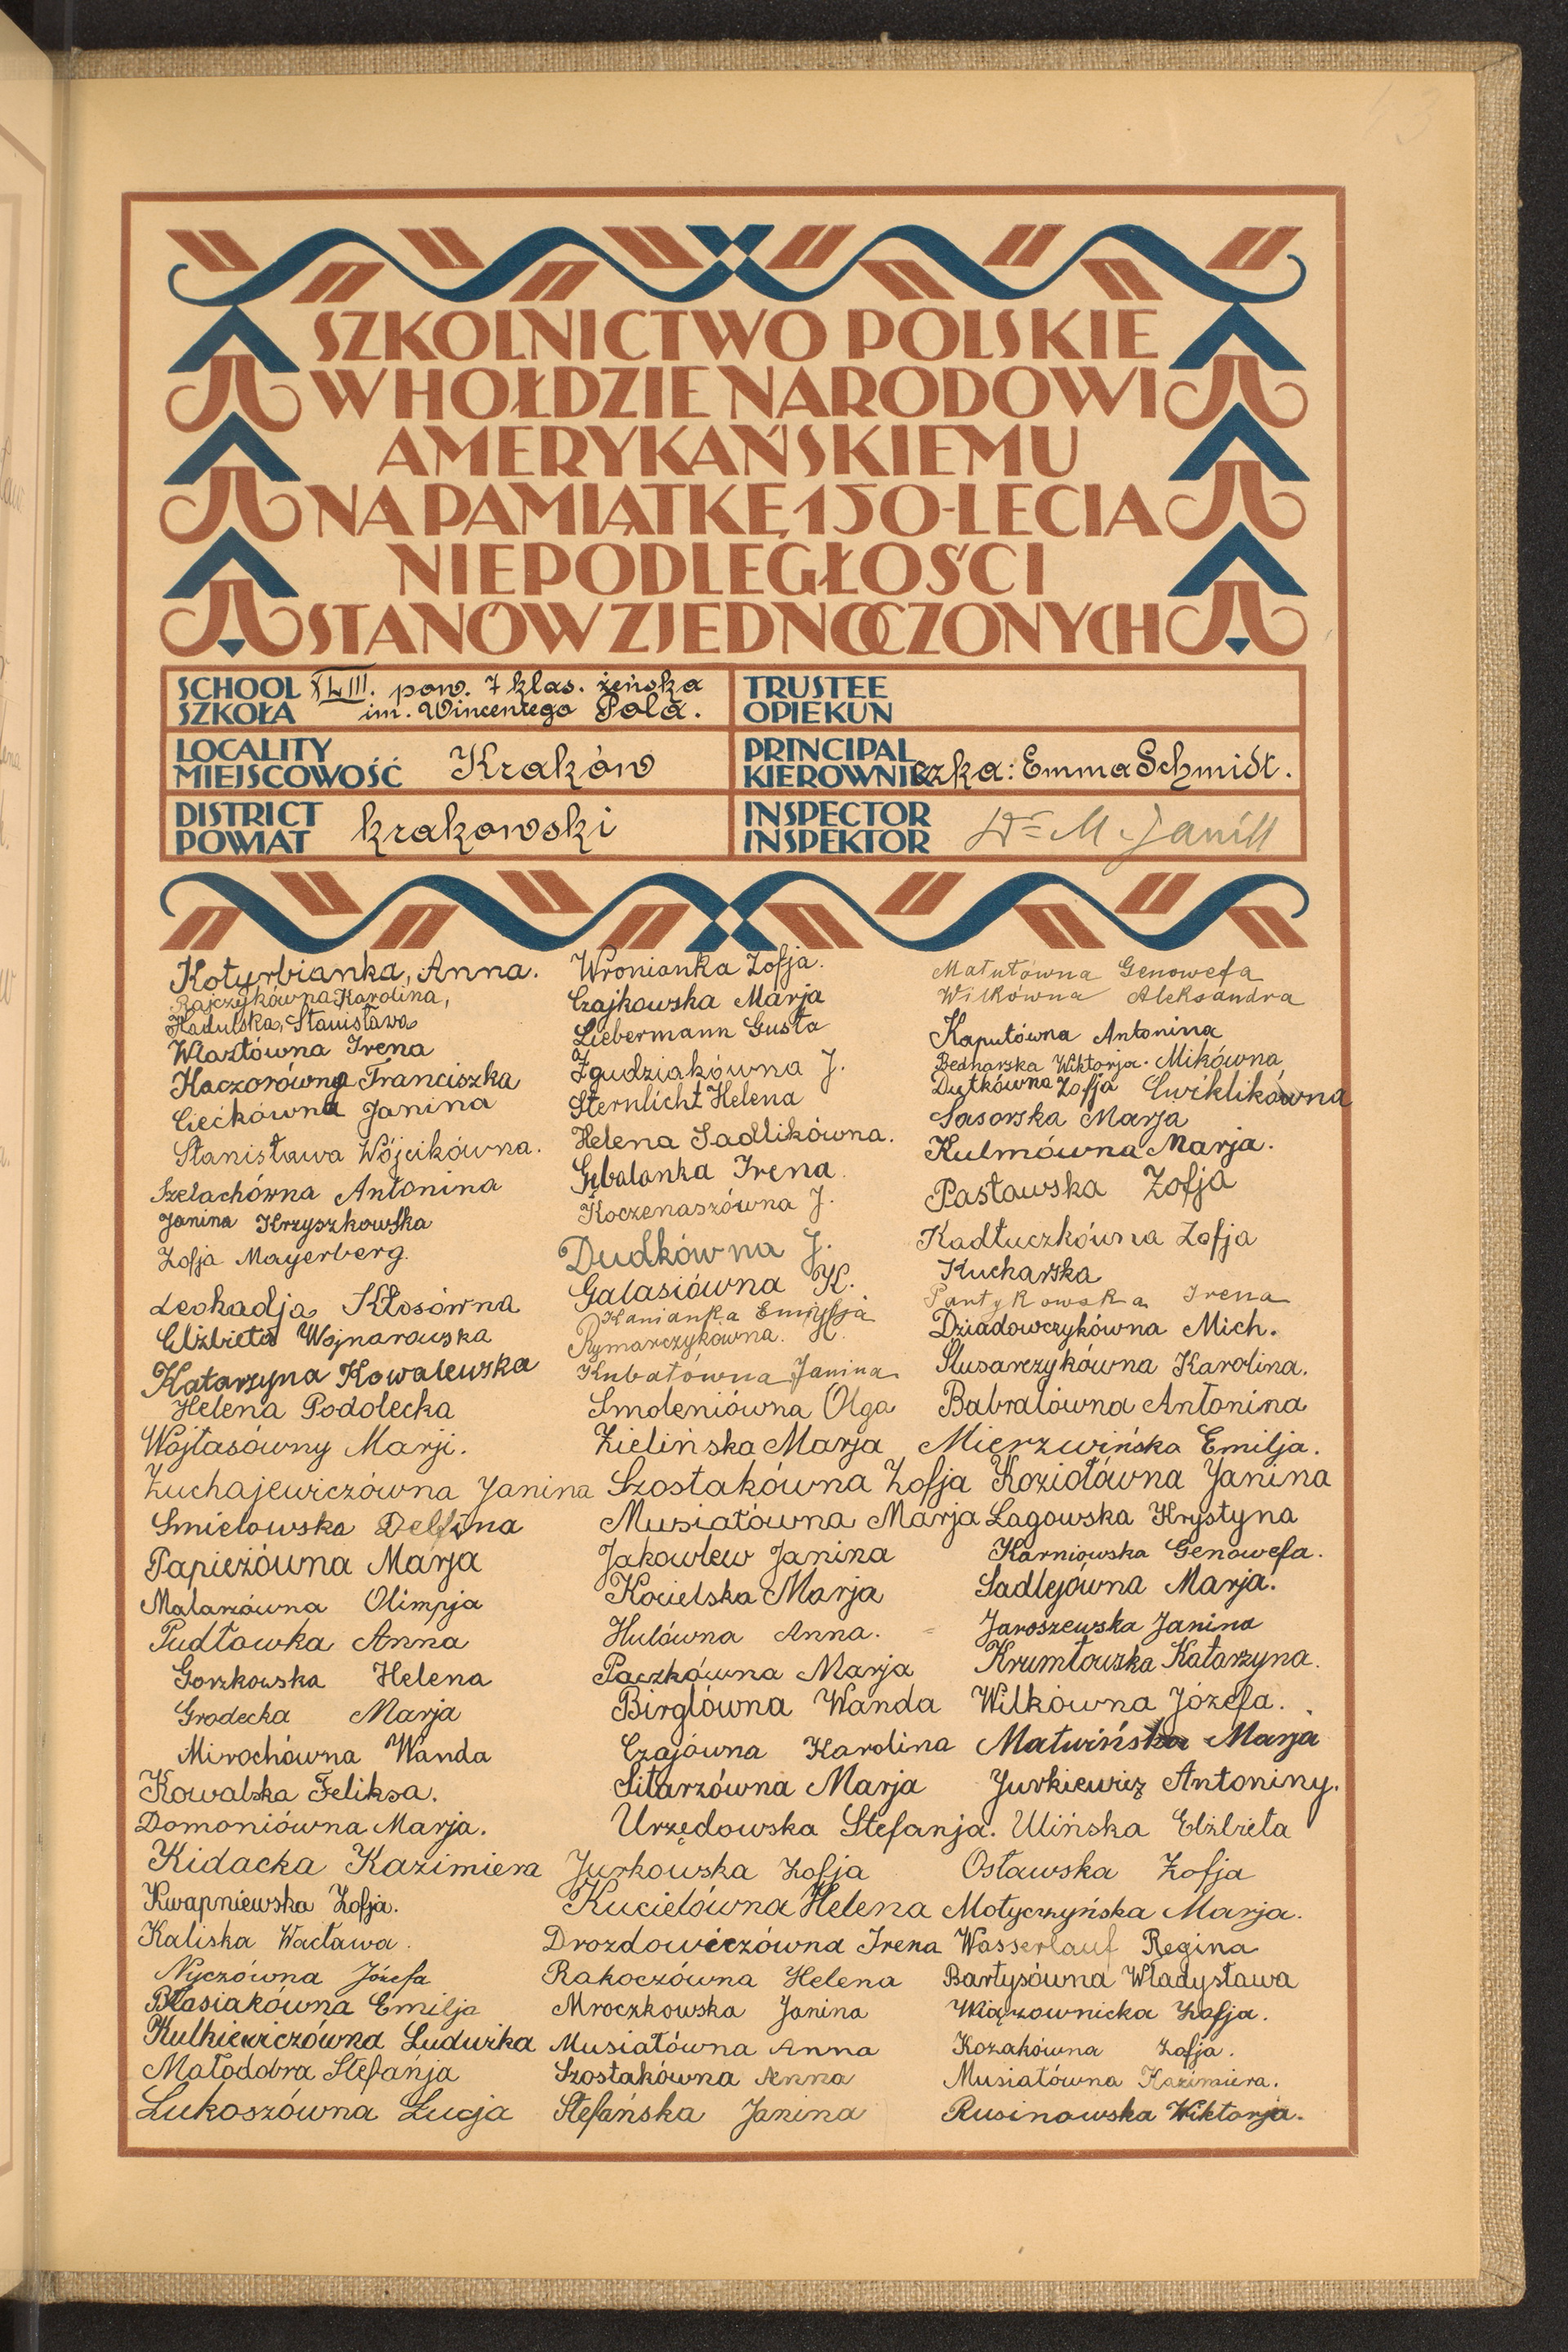 SZKOLNICTWO POLSKIE
W HOŁDZIE NARODOWI
AMERYKAŃSKIEMU
NA PAMIĄTKĘ 150-LECIA
NIEPODLEGŁOŚCI
STANÓW ZJEDNOCZONYCH
SCHOOL
SZKOŁA
XLIII. pow. 7 klas. żeńska
im. Wincentego Pola.
TRUSTEE
OPIEKUN
LOCALITY
MIEJSCOWOŚĆ
Kraków
PRINCIPAL
KIEROWNIczka: Emma Schmidt.
DISTRICT
POWIAT
krakowski
INSPECTOR
INSPEKTOR
Dr M.
Kotyrbianka, Anna.
Rajczykówna Karolina,
Kadulska, Stanisława
Wlaztówna Irena
Kaczorówna Franciszka
Ciećkówna Janina
Stanisława Wójcikówna.
Szelachówna Antonina
Janina Krzyszkowska
Zofja Mayerberg.
Leokadja Kłosówna
Elżbieta Wojnarowska
Katarzyna Kowalewska
Helena Podolecka
Wojtasówny Marji.
Żuchajewiczówna Janina
Smielowska Delfina
Papieżówna Marja
Malarzówna Olimpja
Pudłowka Anna
Gorzkowska Helena
Grodecka Marja
Mirochówna Wanda
Kowalska Feliksa.
Domoniówna Marja.
Kidacka Kazimiera
Kwapniewska Zofja.
Kaliska Wacława.
Nyczówna Józefa
Błasiakówna Emilja
Kulkiewiczówna Ludwika
Małodobra Stefanja
Lukoszówna Łucja
Wronianka Zofja.
Czajkowska Marja
Liebermann Gusta
Zgudziakówna J.
Sternlicht Helena
Helena Sadlikówna.
Gębalanka Irena.
Koczenaszówna J.
Dudkówna J.
Galasiówna K.
Kanianka Emilja
Rymarczykówna. K.
Kubatówna Janina
Smoleniówna Olga
Zielińska Marja
Szostakówna Zofja
Musiałówna Marja
Jakowlew Janina
Kocielska Marja
Hulówna Anna.
Paczkówna Marja
Birglówna Wanda
Czajówna Karolina
Sitarzówna Marja
Urzędowska Stefanja.
Jurkowska Zofja
Kucielówna Helena
Drozdowiczówna Irena
Rakoczówna Helena
Mroczkowska Janina
Musiałówna Anna
Szostakówna Anna
Stefańska Janina
Matutówna Genowefa
Wilkówna Aleksandra
Kaputówna Antonina
Bednarska Wiktorja. Mikówna
Dutkówna Zofja Cwiklikówna
Sasorska Marja
Kulmówna Marja.
Pastawska Zofja
Kadłuczkówna Zofja
Kucharska
Partykowska Irena
Dziadowczykówna Mich.
Slusarczykówna Karolina.
Babralówna Antonina
Mierzwińska Emilja.
Koziołówna Janina
Lagowska Krystyna
Karniowska Genowefa.
Sadlejówna Marja.
Jaroszewska Janina
Krumłowska Katarzyna.
Wilkówna Józefa.
Matwińska Marja
Jurkiewicz Antoniny.
Ulińska Elżbieta
Osławska Zofja
Motyczyńska Marja.
Wasserlauf Regina
Bartysówna Władysława
Wiązownicka Zofja.
Kozakówna Zofja.
Musiałówna Kazimiera.
Rusinowska Wiktorja.